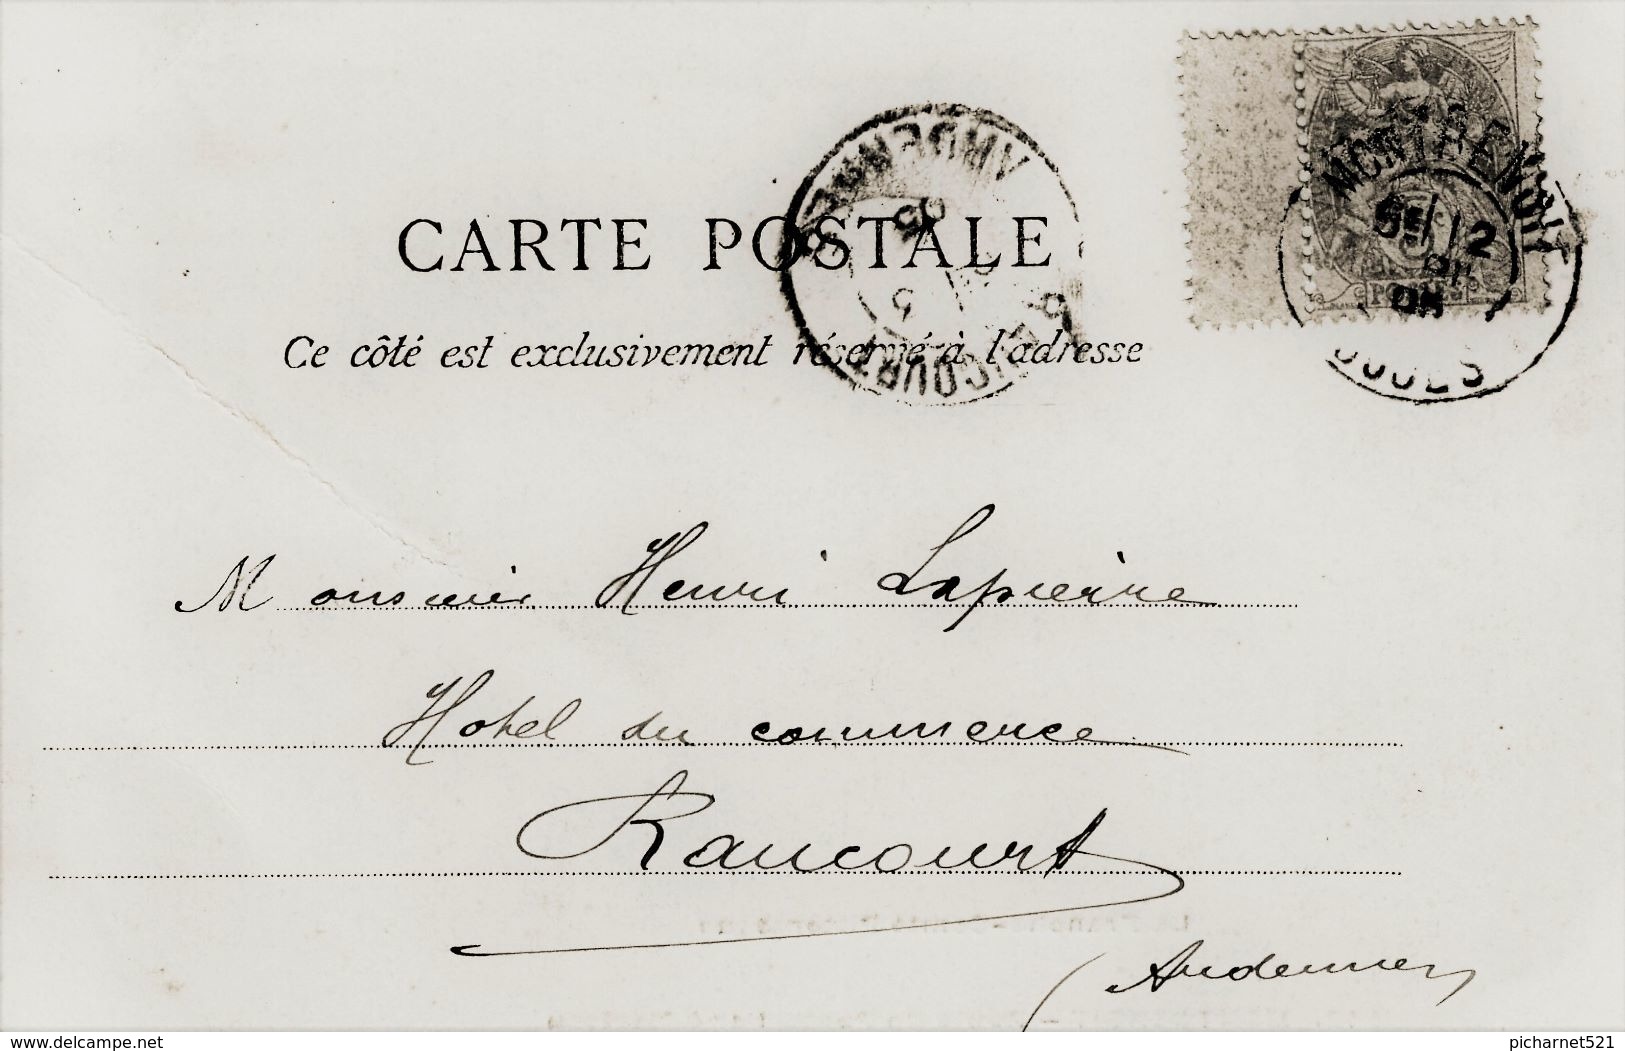 CARTE POSTALE
Ce côté est exclusivement réservé à l'adresse
ARDENNES
05
MONTBENOIT
12
05
DOUBS
POSTES
Monsieur Henri Lapierre
Hotel du commerce
Raucourt
(Ardennes)
www.delcampe.net
picharnet521